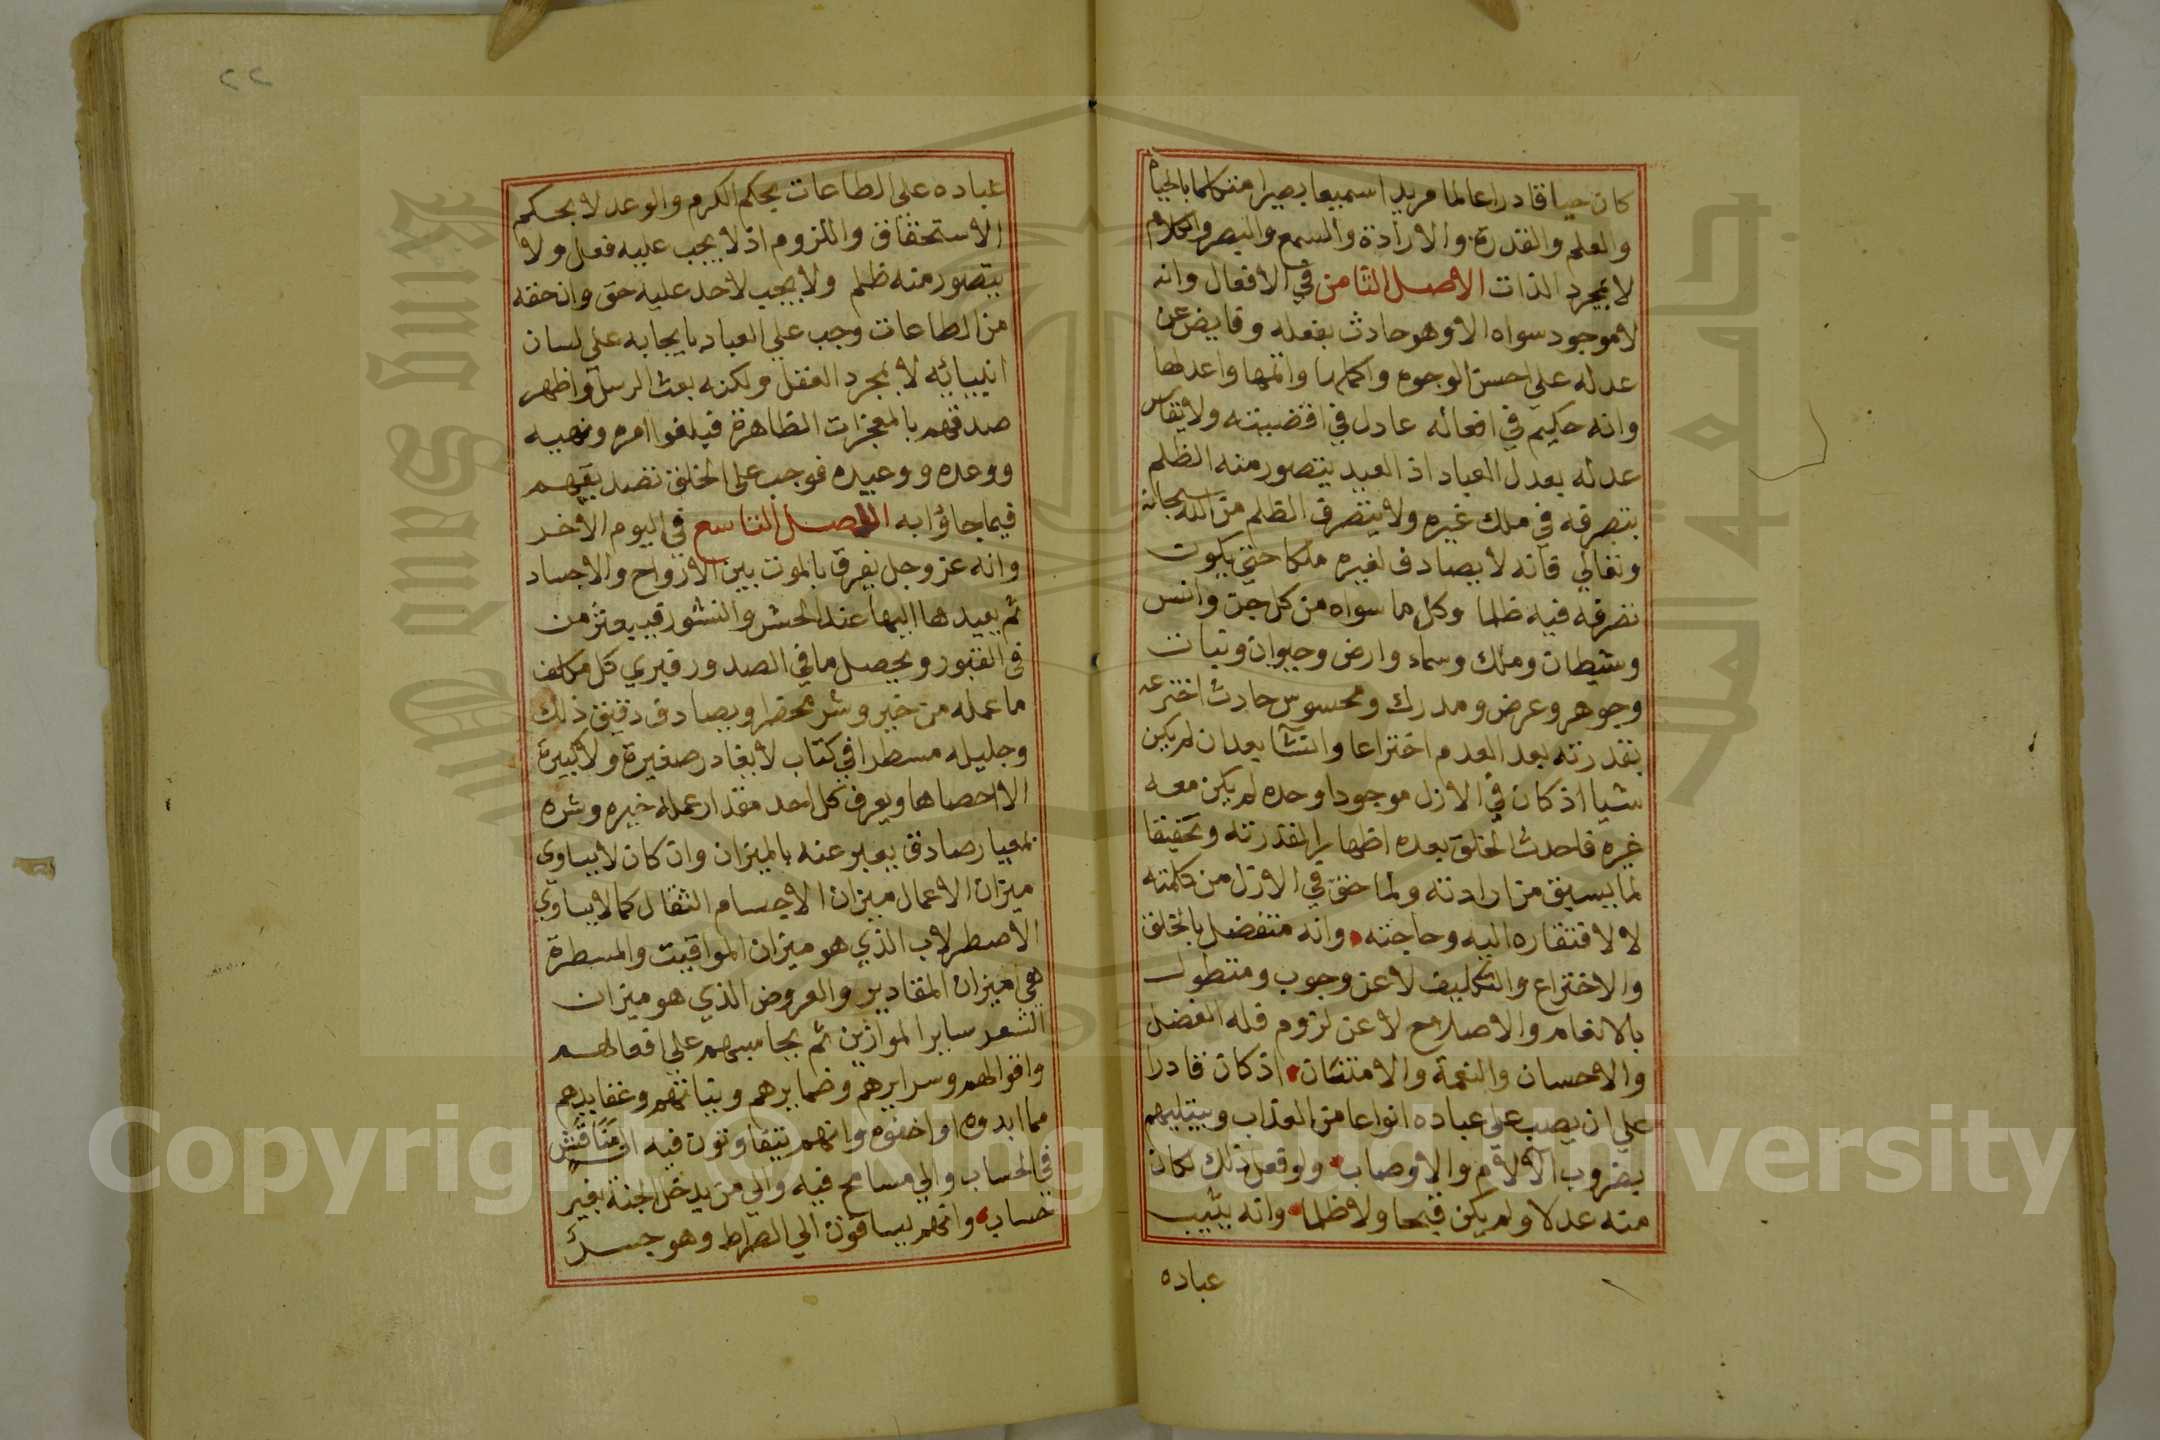 كان حيا قادرا عالما مريدا سميعا بصيرا متكلما بالحياة
والعلم والقدرة والارادة والسمع والبصر والكلام
لا بمجرد الذات الاصل الثامن في الافعال وانه
لا موجود سواه الا وهو حادث بفعله وفايض عن
عدله علي احسن الوجوه واكملها واتمها واعدلها
وانه حكيم في افعاله عادل في اقضيته ولا يقاس
عدله بعدل العباد اذ العبد يتصور منه الظلم
بتصرفه في ملك غيره ولا يتصرف الظلم من الله سبحانه
وتعالي فانه لا يصادف لغيره ملكا حتي يكون
تصرفه فيه ظلما وكل ما سواه من كل جن وانس
وشيطان وملك وسماء وارض وحيوان ونبات
وجوهر وعرض ومدرك ومحسوس حادث اخترعه
بقدرته بعد العدم اختراعا وانشا بعد ان لم يكن
شيا اذ كان في الازل موجودا وحده لم يكن معه
غيره فاحدث الخلق بعده اظهارا لقدرته وتحقيقا
لما يسبق من ارادته ولما حق في الازل من كلمته
لا لافتقاره اليه وحاجته وانه متفضل بالخلق
والاختراع والتكليف لا عن وجوب ومتطول
بالانعام والاصلاح لا عن لزوم فله الفضل
والاحسان والنعمة والامتنان اذ كان قادرا
علي ان يصب علي عباده انواعا من العذاب ويبتليهم
بضروب الالام والاوصاب ولو فعل ذلك لكان
منه عدلا ولم يكن قبحا ولا ظلما وانه يثيب
عباده
٢٢
عباده علي الطاعات بحكم الكرم والوعد لا بحكم
الاستحقاق واللزوم اذ لا يجب عليه فعل ولا
يتصور منه ظلم ولا يجب لاحد عليه حق وان حقه
من الطاعات وجب علي العباد بايجابه علي لسان
انبيائه لا بمجرد العقل ولكنه بعث الرسل واظهر
صدقهم بالمعجزات الظاهرة فبلغوا امره ونهيه
ووعده ووعيده فوجب علي الخلق تصديقهم
فيما جاؤا به الاصل التاسع في اليوم الاخر
وانه عز وجل يفرق بالموت بين الارواح والاجساد
ثم يعيدها اليها عند الحشر والنشور فيبعثر من
في القبور ويحصل ما في الصدور فيري كل مكلف
ما عمله من خير وشر محضرا ويصادف دقيق ذلك
وجليله مسطرا في كتاب لا يغادر صغيرة ولا كبيرة
الا احصاها ويعرف كل احد مقدار عمله خيره وشره
بمعيار صادق يعبر عنه بالميزان وان كان لا يساوي
ميزان الاعمال ميزان الاجسام الثقال كما لا يساوي
الاصطرلاب الذي هو ميزان المواقيت والمسطرة
هي ميزان المقادير والعروض الذي هو ميزان
الشعر ساير الموازين ثم يحاسبهم علي افعالهم
واقوالهم وسرايرهم وضمايرهم ونياتهم وعقايدهم
مما ابدوه او اخفوه وانهم يتفاوتون فيه الي مناقش
في الحساب والي مسامح فيه والي من يدخل الجنة بغير
حساب وانهم يساقون الي الصراط وهو جسر
King Saud University
جامعة الملك
1957
Copyright © King Saud University